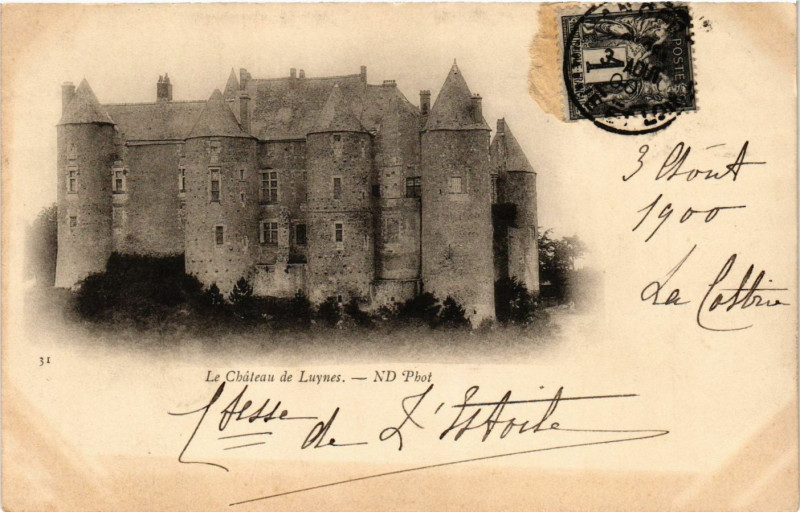 POSTES
1
3 Août
1900
La Cottrie
31
Le Château de Luynes. — ND Phot
Ctesse de L'Estoile